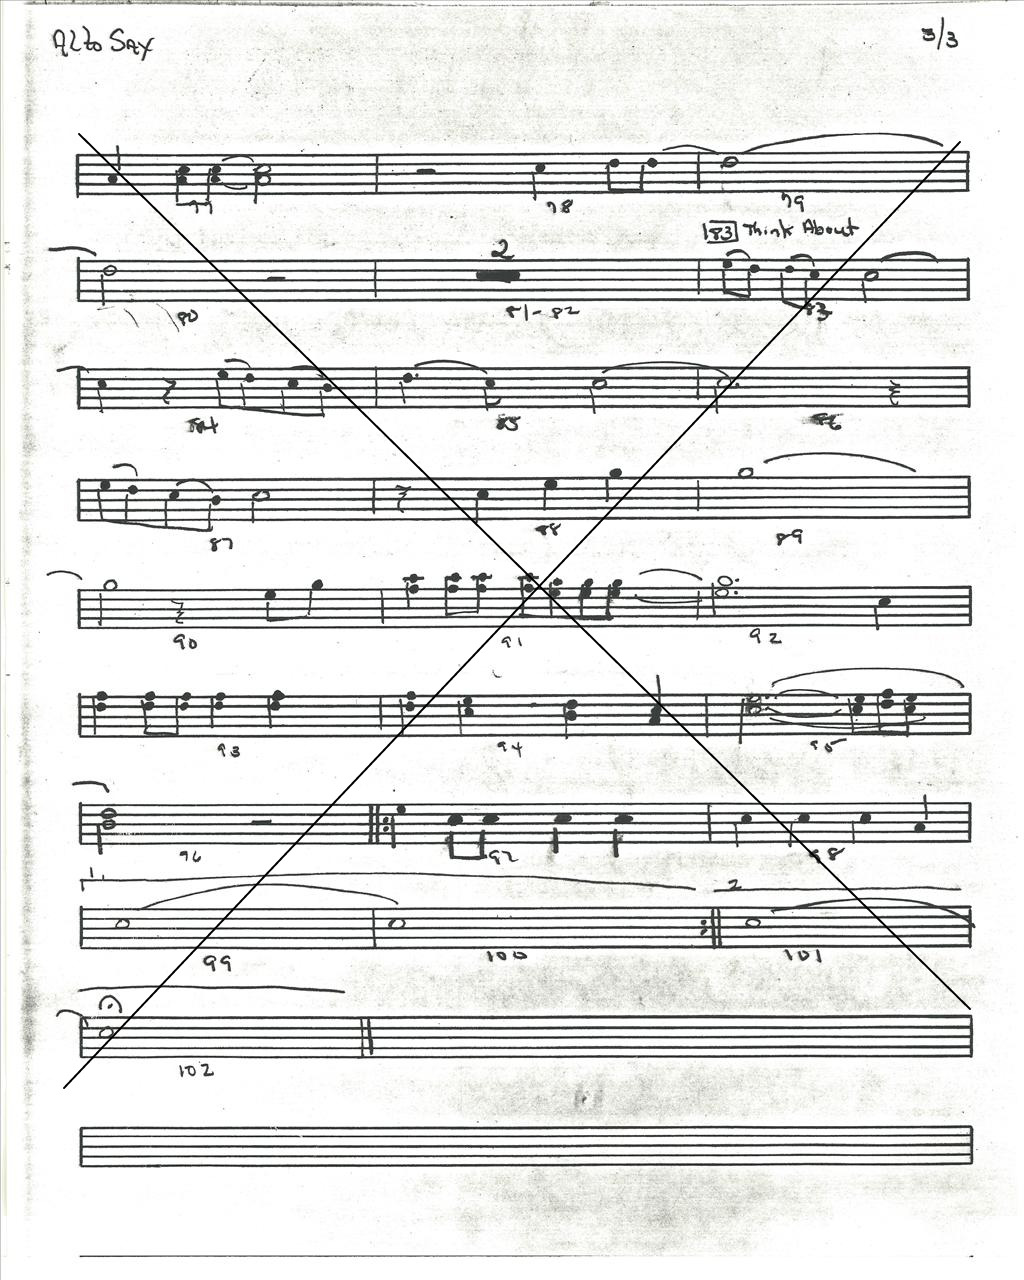 Alto Sax 3/3
77 78 79
83 Think About
2
80 81-82 83
84 85 86
87 88 89
90 91 92
93 94 95
96 97 98
1. 2
99 100 101
102